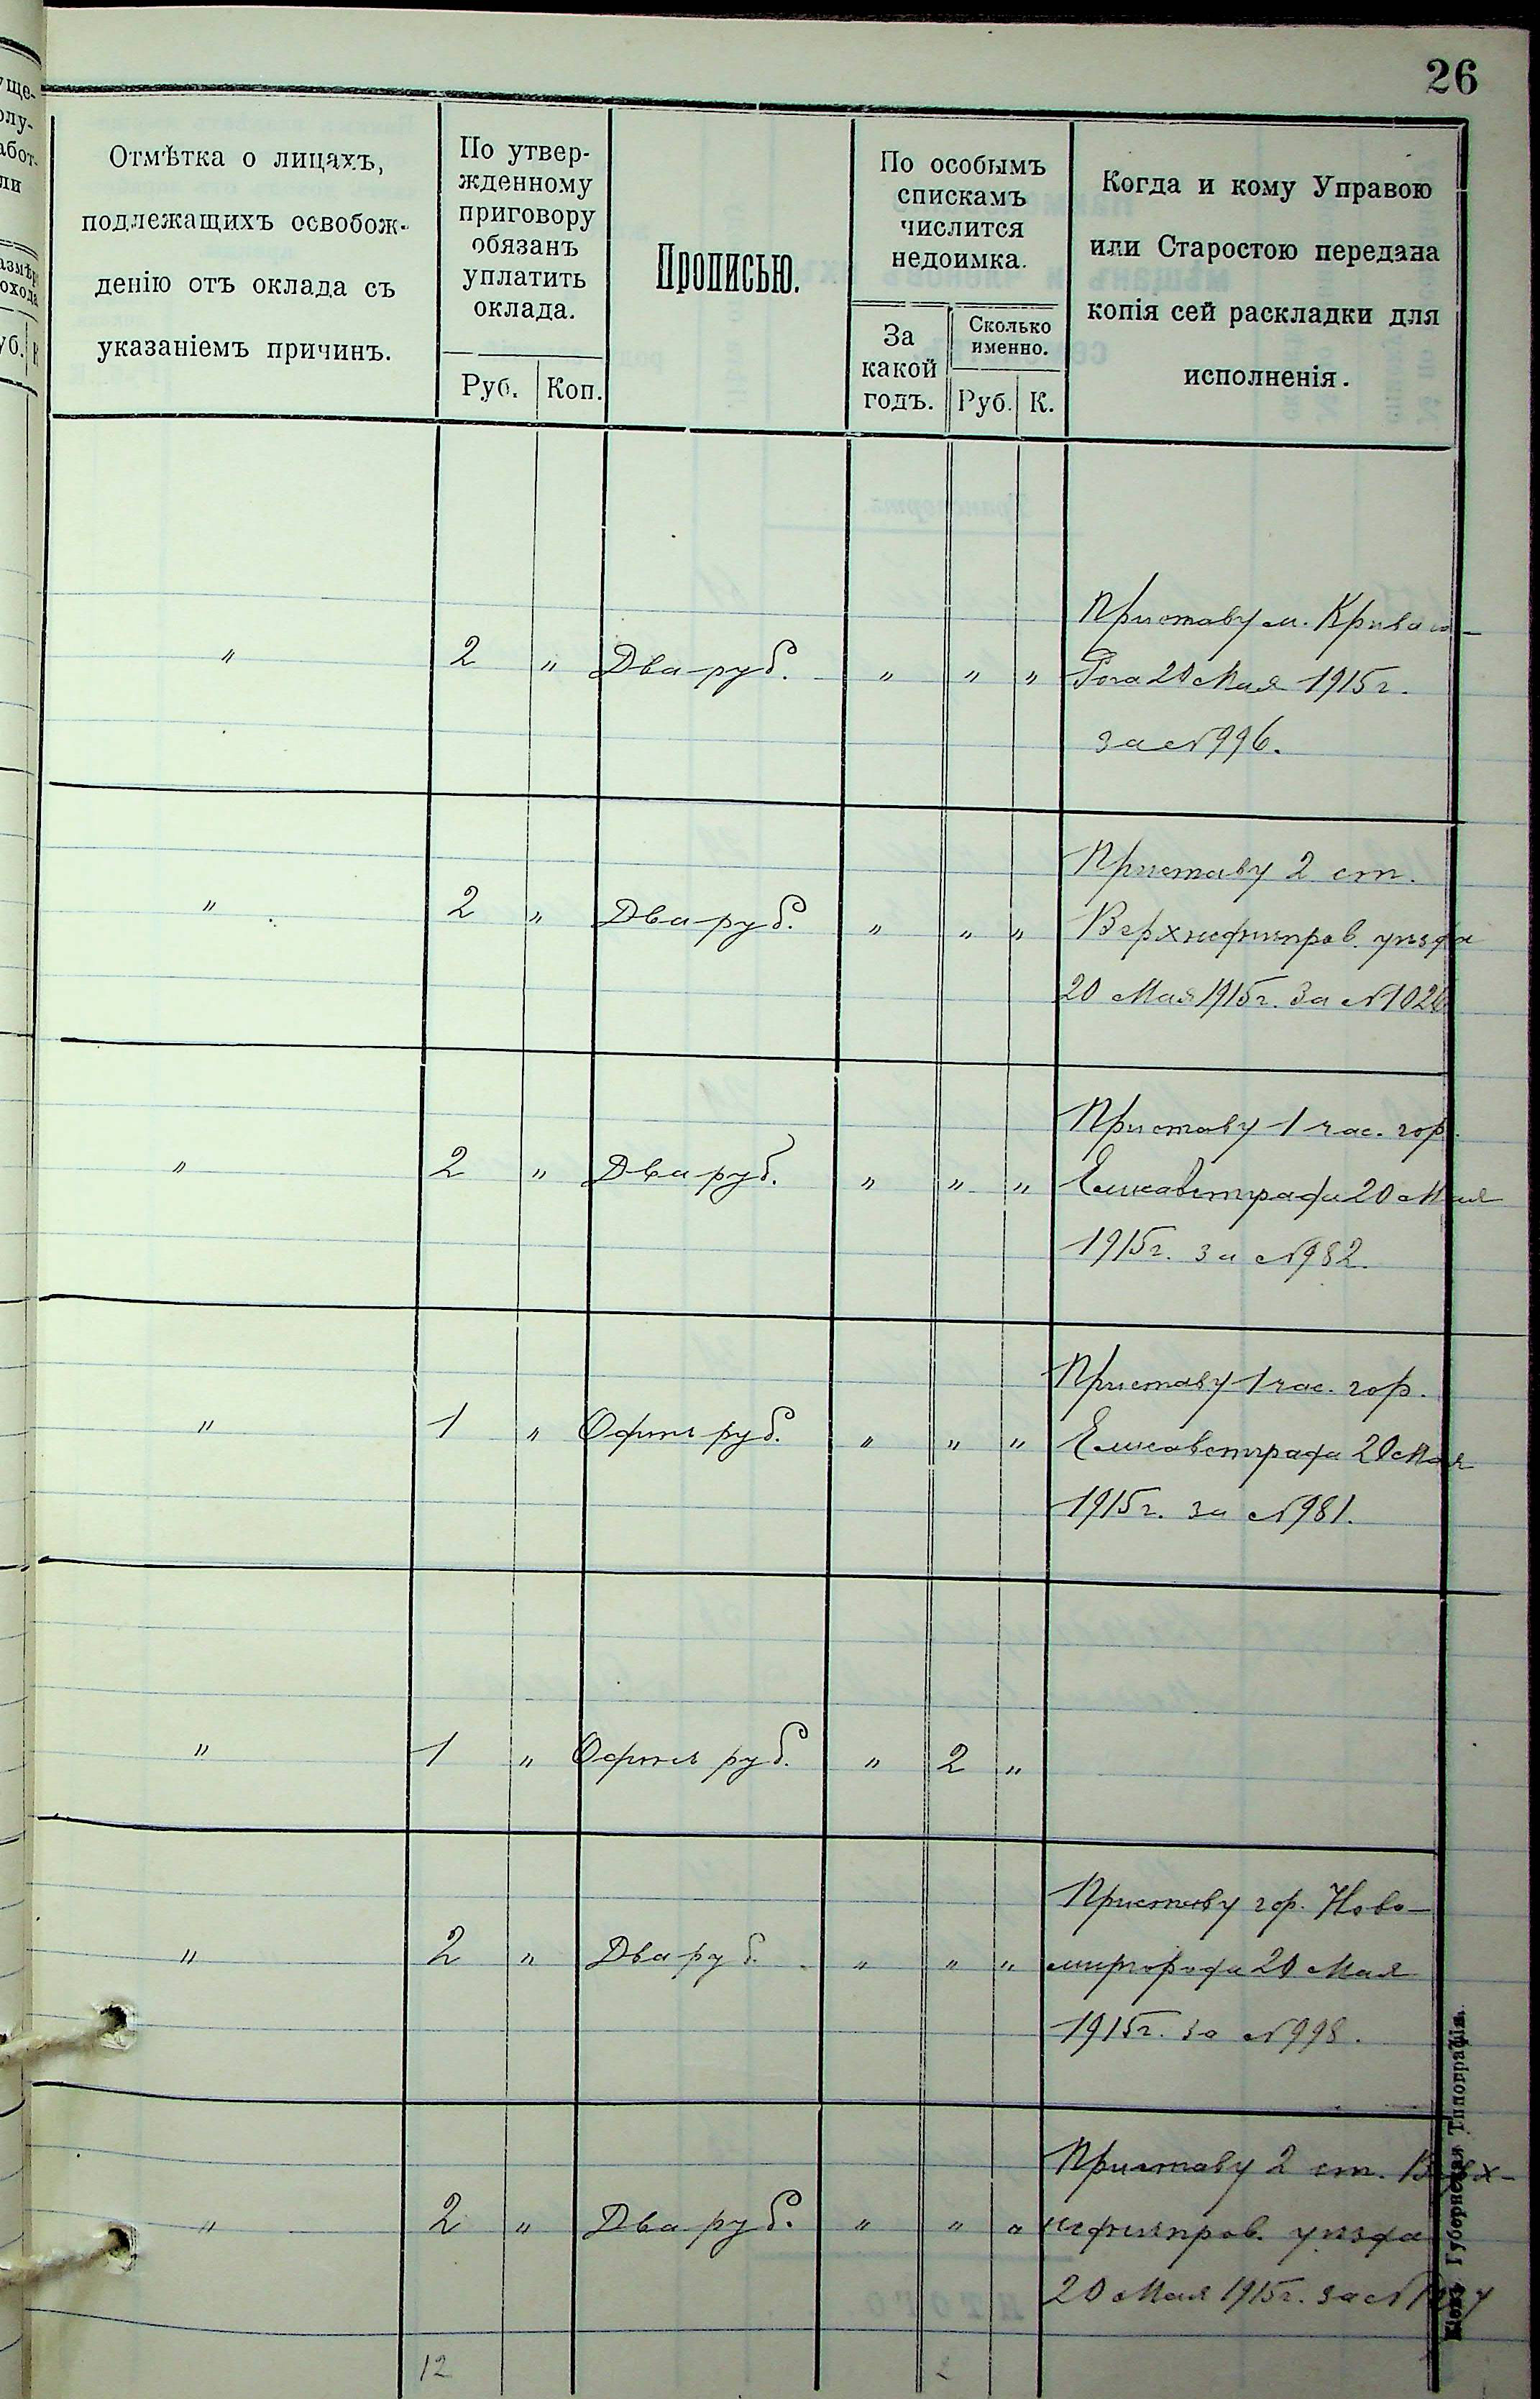 26
Отмѣтка о лицахъ,
подлежащихъ освобож-
денію отъ оклада съ
указаніемъ причинъ.
По утвер-
жденному
приговору
обязанъ
уплатить
оклада.
Руб.
Коп.
Прописью.
По особымъ
спискамъ
числится
недоимка.
За
какой
годъ.
Сколько
именно.
Руб.
К.
Когда и кому Управою
или Старостою передана
копія сей раскладки для
исполненія.
Приставу м. Кривого-
" 2 " Два руб. " " " Рога 20 Мая 1915 г.
за № 996.
Приставу 2 ст.
" 2 " Два руб. " " " Верхнеднѣпров. уѣзда
20 Мая 1915 г. За № 1026
Приставу 1 час. гор.
" 2 " Два руб. " " " Елисаветграда 20 Мая
1915 г. за № 982.
Приставу 1 час. гор.
" 1 " Одинъ руб. " " " Елисаветграда 20 Мая
1915 г. за № 981.
" 1 " Одинъ руб. " 2 "
Приставу гор. Ново-
" 2 " Два руб. " " " миргорода 20 Мая
1915 г. за № 998.
Приставу 2 ст. Верх-
" 2 " Два руб. " " " неднѣпров. уѣзда
20 Мая 1915 г. за №
12 2
Губернская Типографія.